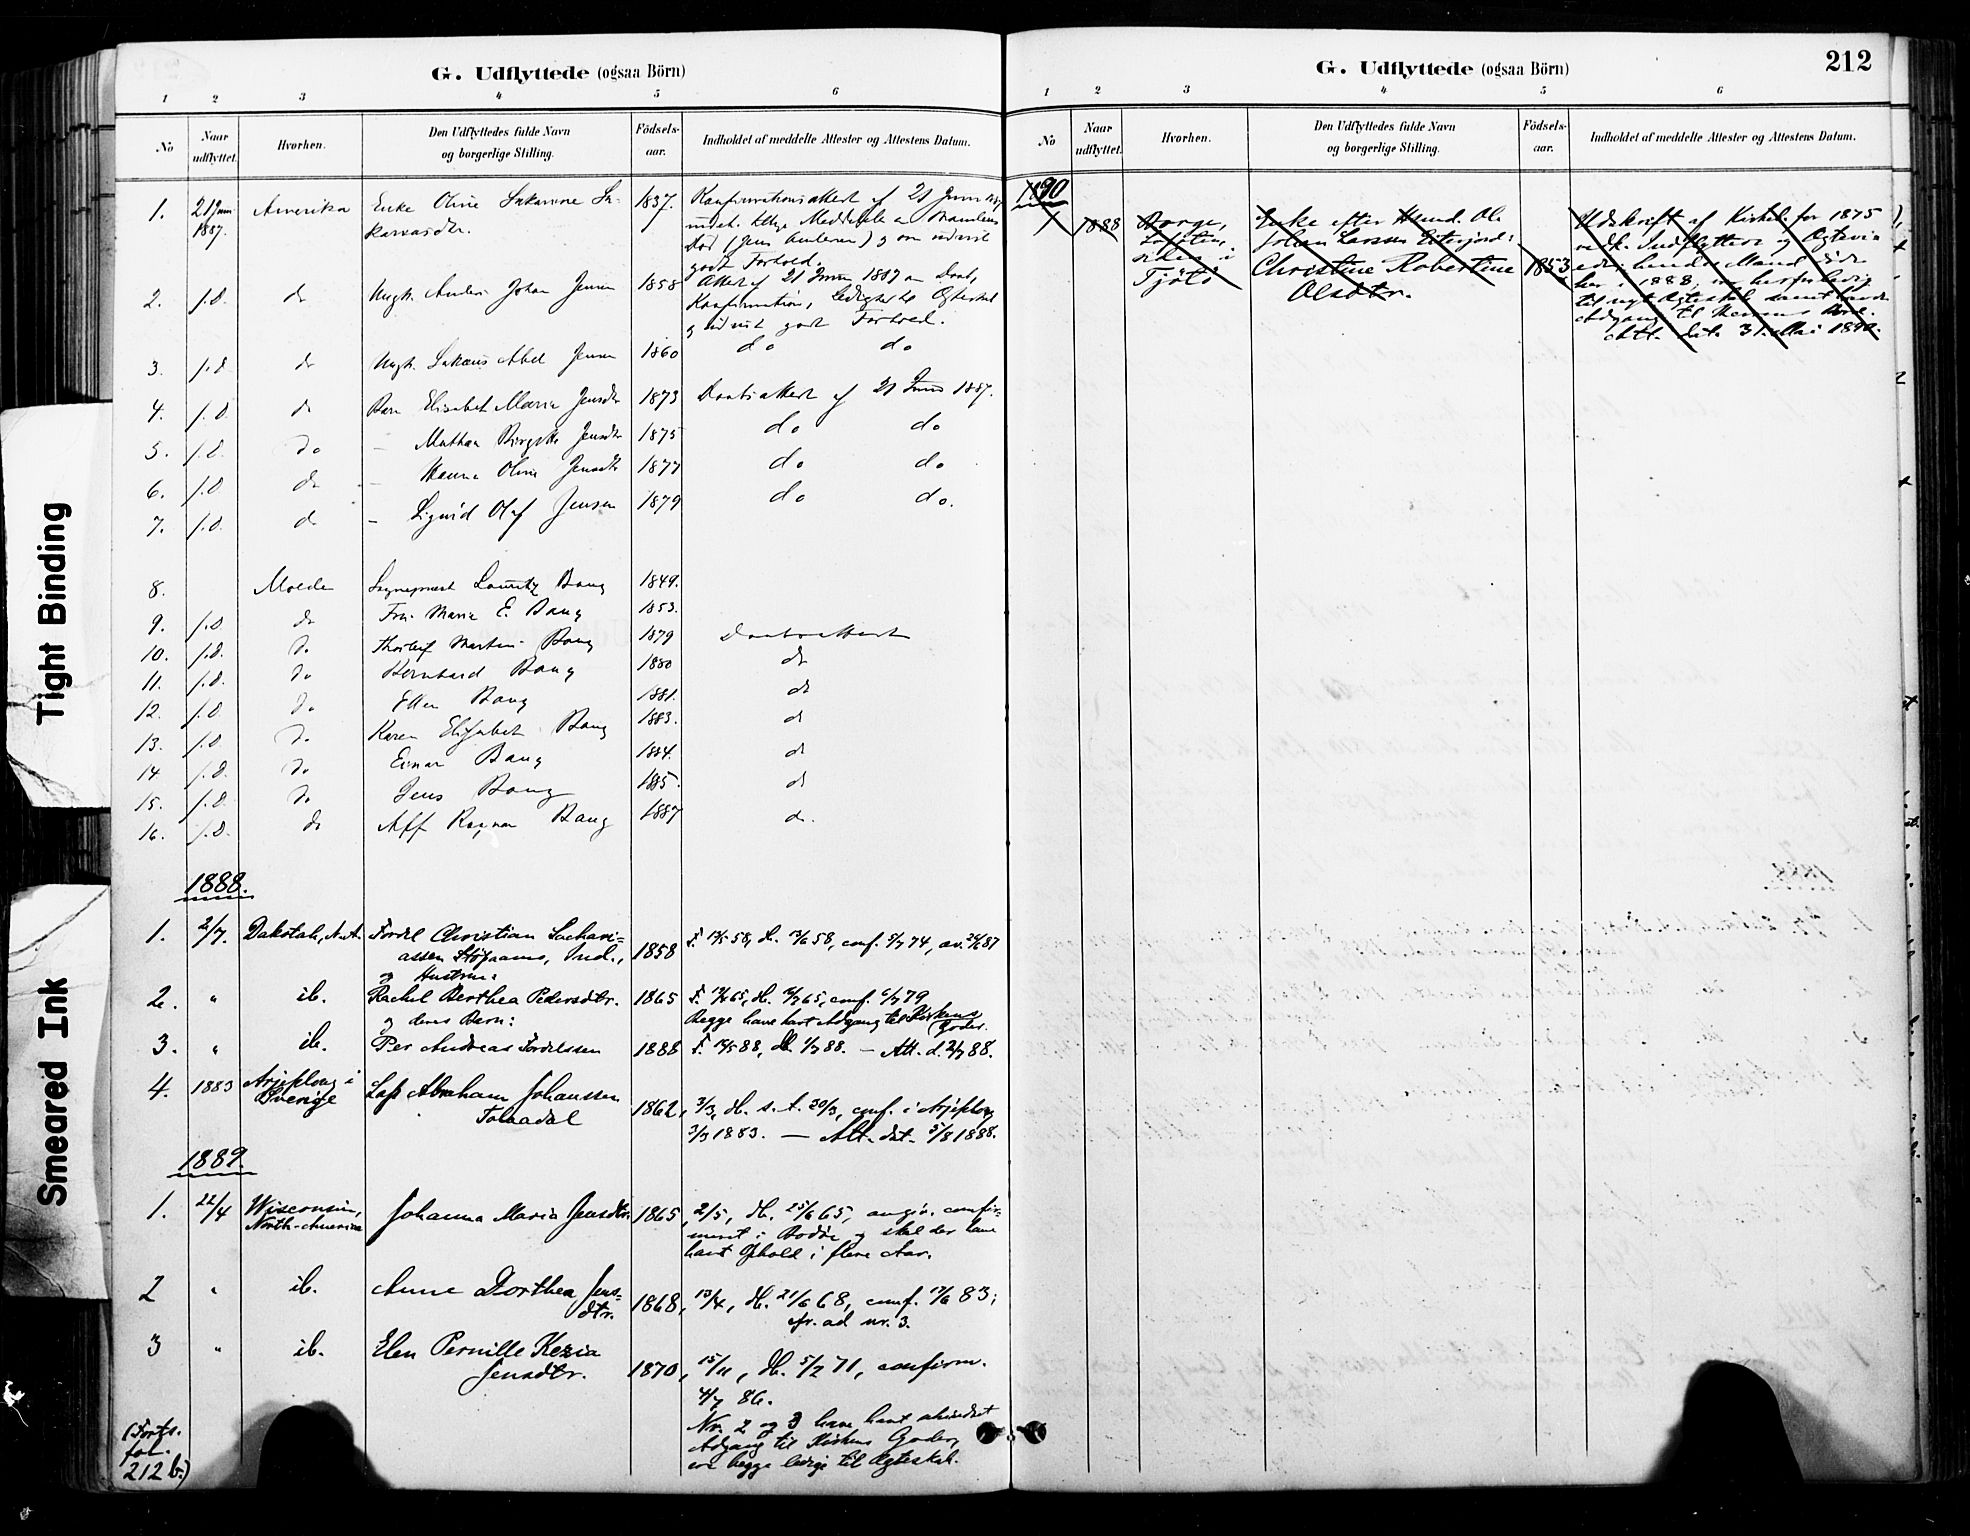 Tight Binding
Smeared Ink
G. Udflyttede (ogsaa Börn)
1 2 3 4 5 6
No
Naar udflyttet.
Hvorhen.
Den Udflyttedes fulde Navn og borgerlige Stilling.
Födsels-aar.
Indholdet af meddelte Attester og Attestens Datum.
1. 21 Juni 1887. Amerika Enke Oline 1837. Konfirmationsattest af 21 Juni
godt Forhold.
2. s.D. do Ungk. Anders Johan Jensen 1858 Attest af 21 Juni 1887 om Daab,
Konfirmation, Ledighed til Ægteskab
og udvist godt Forhold.
3. s.D. do Ungk. Sakæus Abel Jensen 1860 do do
4. s.D. do Barn Elisabet Maria Jensdtr 1873 Daabsattest af 21 Juni 1887.
5. s.D. do — Mathea Birgitte Jensdtr 1875 do do
6. s.D. do — Hanna Oline Jensdtr 1877 do do
7. s.D. do — Sigurd Olaf Jensen 1879 do do.
8. Molde Sognepræst Lauritz Bang 1849.
9. s.D. do Fru Maria E. Bang 1853.
10. s.D. do Thorleif Martin Bang 1879 Daabsattest
11. s.D. do Bernhard Bang 1880 do
12. s.D. do Ellen Bang 1881. do
13. s.D. do Karen Elisabet Bang 1883. do
14 s.D. do Einar Bang 1884. do
15. s.D. do Jens Bang 1885. do
16. s.D. do Alf Ragnar Bang 1887 do.
1888.
1. 2/7. Dakotah, N.A. Fordel Christian Sachari-
assen Ind., 1858
og Hustru:
2. " ib. Rachel Berthea Pedersdtr. 1865
og deres Barn: Begge have havt Adgang til Kirkens
Goder.
3. " ib. Per Andreas Fordelssen 1888 — Att. d. 2/7 88.
4. 1883 Arjeplong i
Sverige Lars Abraham Johanssen 1862, 2/3, db. s. A. 20/3, conf. i Arjeplog
1883. — Att. dat. 5/8 1888.
1889.
1. 22/4 Wisconsin,
North-America Johanna Maria Jensdtr. 1865, 2/5, db. 25/6 65, angiv. confir-
meret i Bodø og skal der have
havt Ophold i flere Aar.
2 " ib. Anne Dorthea Jens-
dtr. 1868, 13/4, db. 21/6 68, conf. 83;
cfr. ad nr. 3.
3 " ib. Elen Pernille Kezia
Jensdtr. 1870, 15/11, db. 5/2 71, confirm.
4/7 86.
Nr. 2 og 3 have havt uhindret
Adgang til Kirkens Goder,
ere begge ledige til Ægteskab.
(Forts.
fol.
212 b.)
G. Udflyttede (ogsaa Börn)
212
1 2 3 4 5 6
No
Naar udflyttet.
Hvorhen.
Den Udflyttedes fulde Navn og borgerlige Stilling.
Födsels-aar.
Indholdet af meddelte Attester og Attestens Datum.
1890
1 1888 Borge,
Lofoten,
siden i
Tjötö
Enke efter Husmd. Ole
Johan Larssen
Christine Robertine
Olsdtr.
1853
Udskrift af Kirkeb. for 1875
vedk. Indflyttere og Ægteviede;
hendes Mand døde
her i 1888,
til nyt Ægteskab samt havde
Adgang til
Att. dat. 31. Mai 1890.